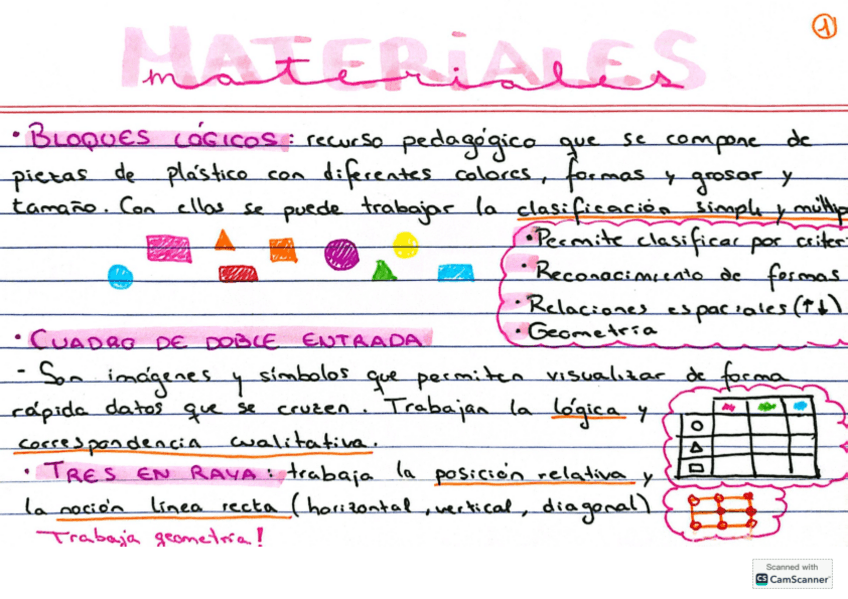 1
MATERIALES
materiales
• BLOQUES LÓGICOS: recurso pedagógico que se compone de
piezas de plástico con diferentes colores, formas y grosor y
tamaño. Con ellos se puede trabajar la clasificación simple y múltip
• Permite clasificar por criter
• Reconocimiento de formas
• Relaciones espaciales (↑↓)
• Geometría
• CUADRO DE DOBLE ENTRADA
- Son imágenes y símbolos que permiten visualizar de forma
rápida datos que se cruzen. Trabajan la lógica y
correspondencia cualitativa.
• TRES EN RAYA: trabaja la posición relativa y
la noción línea recta (horizontal, vertical, diagonal)
Trabaja geometría!
Scanned with
CS CamScanner